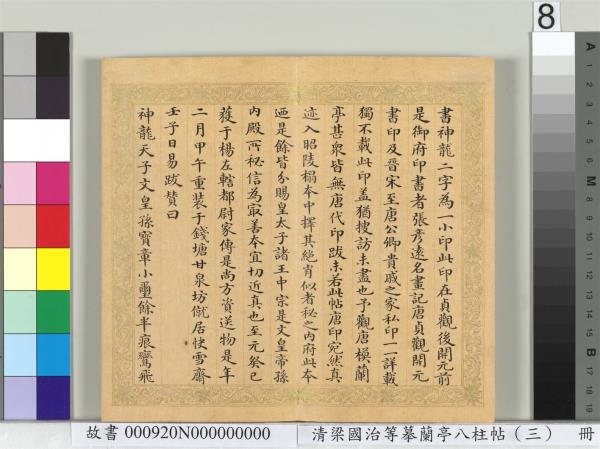 書神龍二字為一小印此印在貞觀後開元前
是御府印書者張彥遠名畫記唐貞觀開元
書印及晉宋至唐公卿貴戚之家私印一一詳載
獨不載此印盖猶搜訪未盡也予觀唐模蘭
亭甚衆皆無唐代印跋未若此帖唐印宛然真
迹入昭陵搨本中擇其絕肖似者秘之內府此本
迺是餘皆分賜皇太子諸王中宗是文皇帝孫
內殿所秘信為寂善本宜切近真也至元癸巳
獲于楊左轄都尉家傳是尚方資送物是年
二月甲午重裝于錢塘甘泉坊僦居快雪齋
壬子日易跋贊曰
神龍天子文皇孫寶章小璽餘半痕鸞飛
8
故書 000920N000000000
清梁國治等摹蘭亭八柱帖（三） 冊
A 1 2 3 4 5 6 M 8 9 10 11 12 13 14 15 B 17 18 19